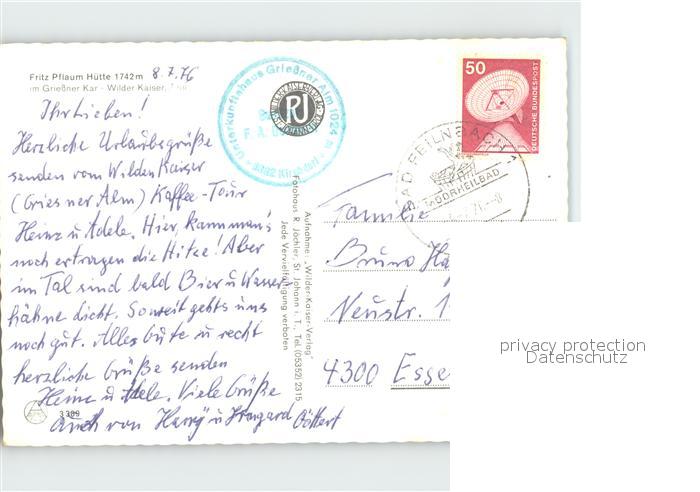 Fritz Pflaum Hütte 1742m
8.7.76
im Grießner Kar - Wilder Kaiser, Tirol
Ihr Lieben!
Herzliche Urlaubsgrüße
senden vom Wilden Kaiser
(Griesner Alm) Kaffee-Tour
Heinz u. Adele. Hier, kann man's
noch ertragen die Hitze! Aber
im Tal sind bald Bier u Wasser
hähne dicht. Soweit gehts uns
noch gut. Alles Gute u recht
herzliche Grüße senden
Heinz u. Adele. Viele Grüße
auch von Harry u Irmgard
3309
Unterkunftshaus Grießner Alm 1024 m
6382 Kirchdorf
RJ
Aufnahme: „Wilder-Kaiser-Verlag"
Fotohaus R. Jöchler, St. Johann i. T., Tel. (05352) 2315
Jede Vervielfältigung verboten
50
DEUTSCHE BUNDESPOST
BAD FEILNBACH 1
MOORHEILBAD
Familie
Bruno
Neustr. 1
4300 Esse
privacy protection
Datenschutz